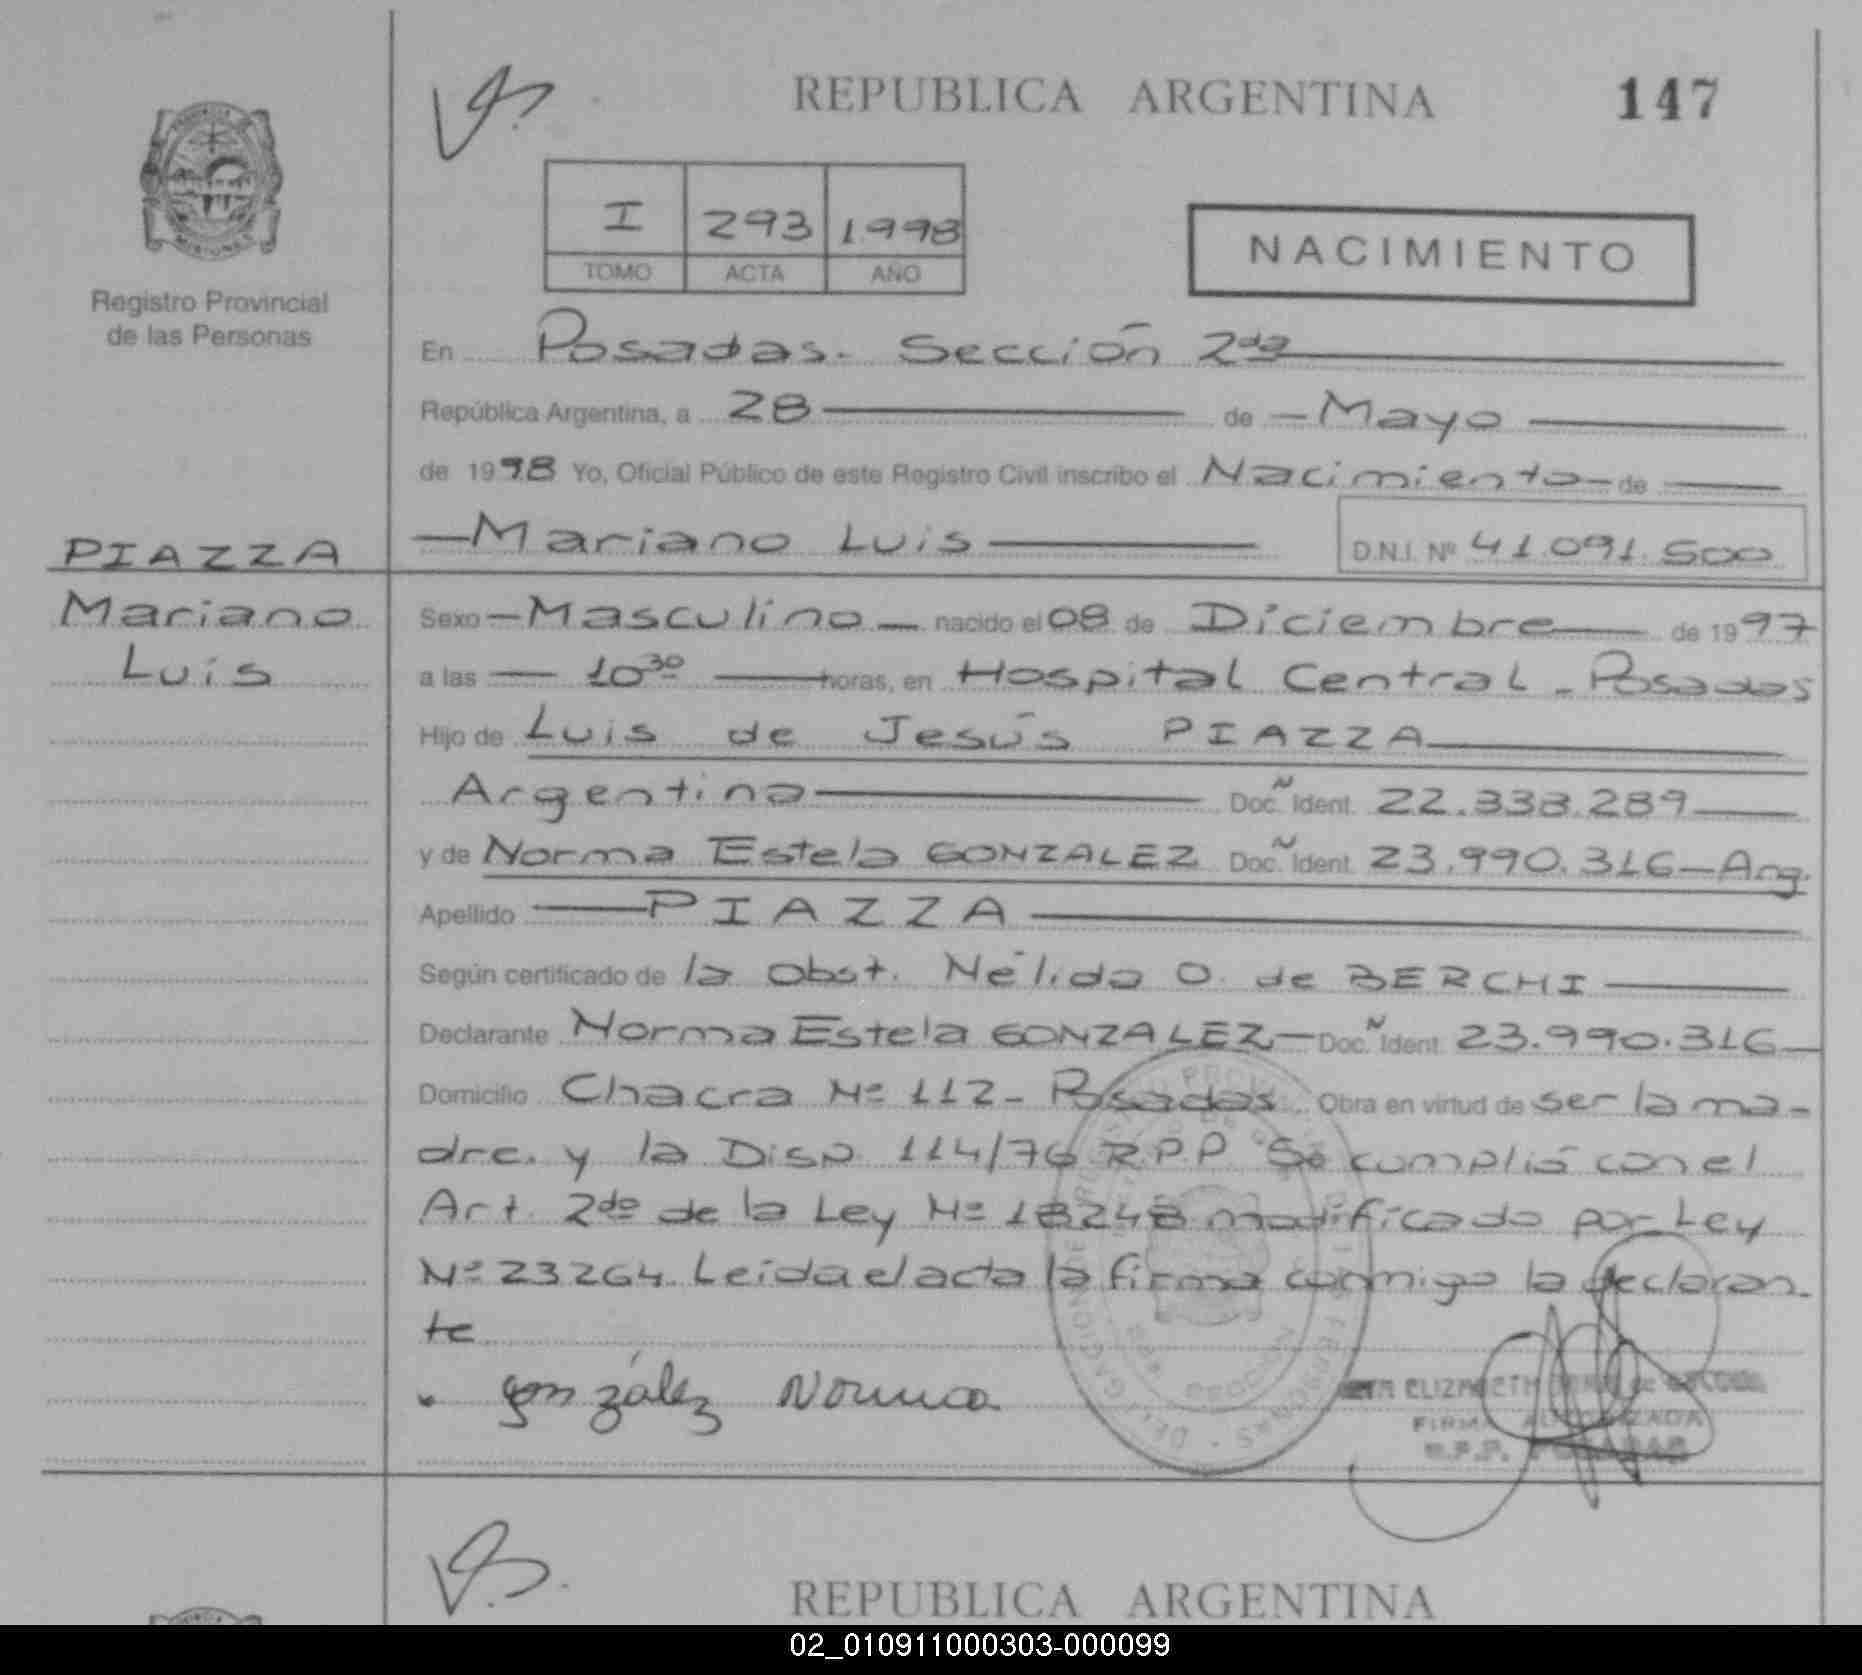 REPUBLICA ARGENTINA
147
I 293 1998
TOMO ACTA AÑO
NACIMIENTO
MISIONES
Registro Provincial
de las Personas
En Posadas. Sección 2da
República Argentina, a 28 de Mayo
de 1998 Yo, Oficial Público de este Registro Civil inscribo el Nacimiento de
Mariano Luis D.N.I. Nº 41.091.500
PIAZZA
Mariano
Luis
Sexo Masculino nacido el 08 de Diciembre de 1997
a las 10 30 horas, en Hospital Central - Posadas
Hijo de Luis de Jesús PIAZZA
Argentina Doc. Ident. 22.338.289
y de Norma Estela GONZALEZ Doc. Ident. 23.990.316-Arg.
Apellido PIAZZA
Según certificado de la Obst. Nélida O. de BERCHI
Declarante Norma Estela GONZALEZ - Doc. Ident. 23.990.316
Domicilio Chacra Nº 112 - Posadas Obra en virtud de ser la ma-
dre. y la Disp. 114/76 R.P.P. Se cumplió con el
Art. 2do de la Ley Nº 18248 modificado por Ley
Nº 23264. Leída el acta la firma conmigo la declaran-
te
González Norma
ELIZABETH
FIRMA AUTORIZADA
R.P.P. POSADAS
REPUBLICA ARGENTINA
02_010911000303-000099